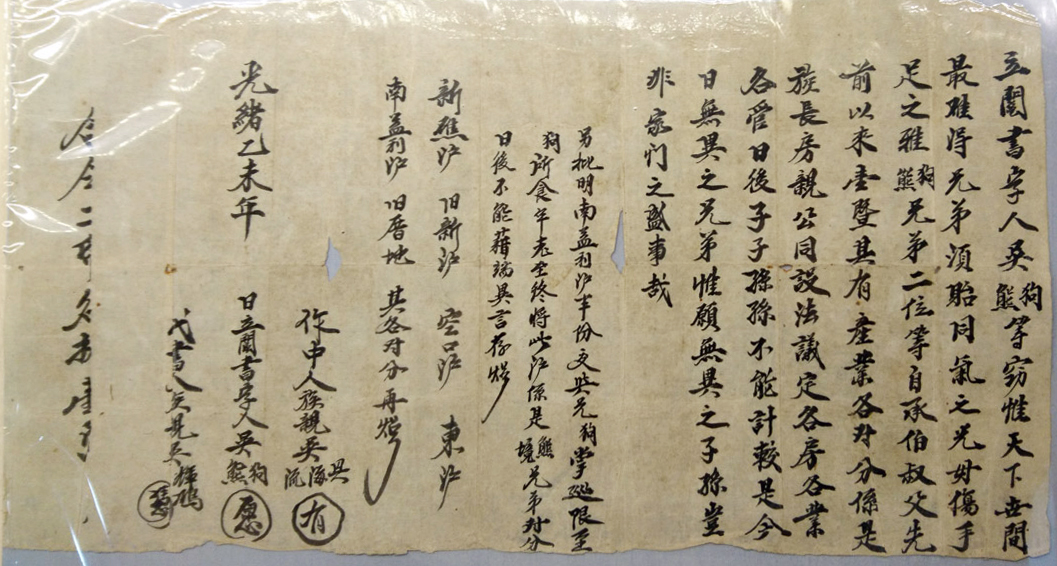 立阄書字人吳狗熊等窃惟天下世間
最难得兄弟須貽同氣之光毋傷手
足之雅狗熊兄弟二位等自承伯叔父先
前以来壹暨其有產業各对分係是
族長房親公同設法議定各房各業
各管日後子子孫孫不能計較是今
日無異之兄弟惟願無異之子孫豈
非家们之盛事哉
另批明南益利沪半份交与兄狗掌巡限至
狗所食年老坐终将此沪係是熊兄弟对分
日後不能藉端異言存炤
新 沪 旧新沪 空口沪 東沪
南益利沪 旧厝地 其各对分再炤
作中人族親吳 有
光緒乙未年 日立阄書字人吳狗熊 愿
代書人吳